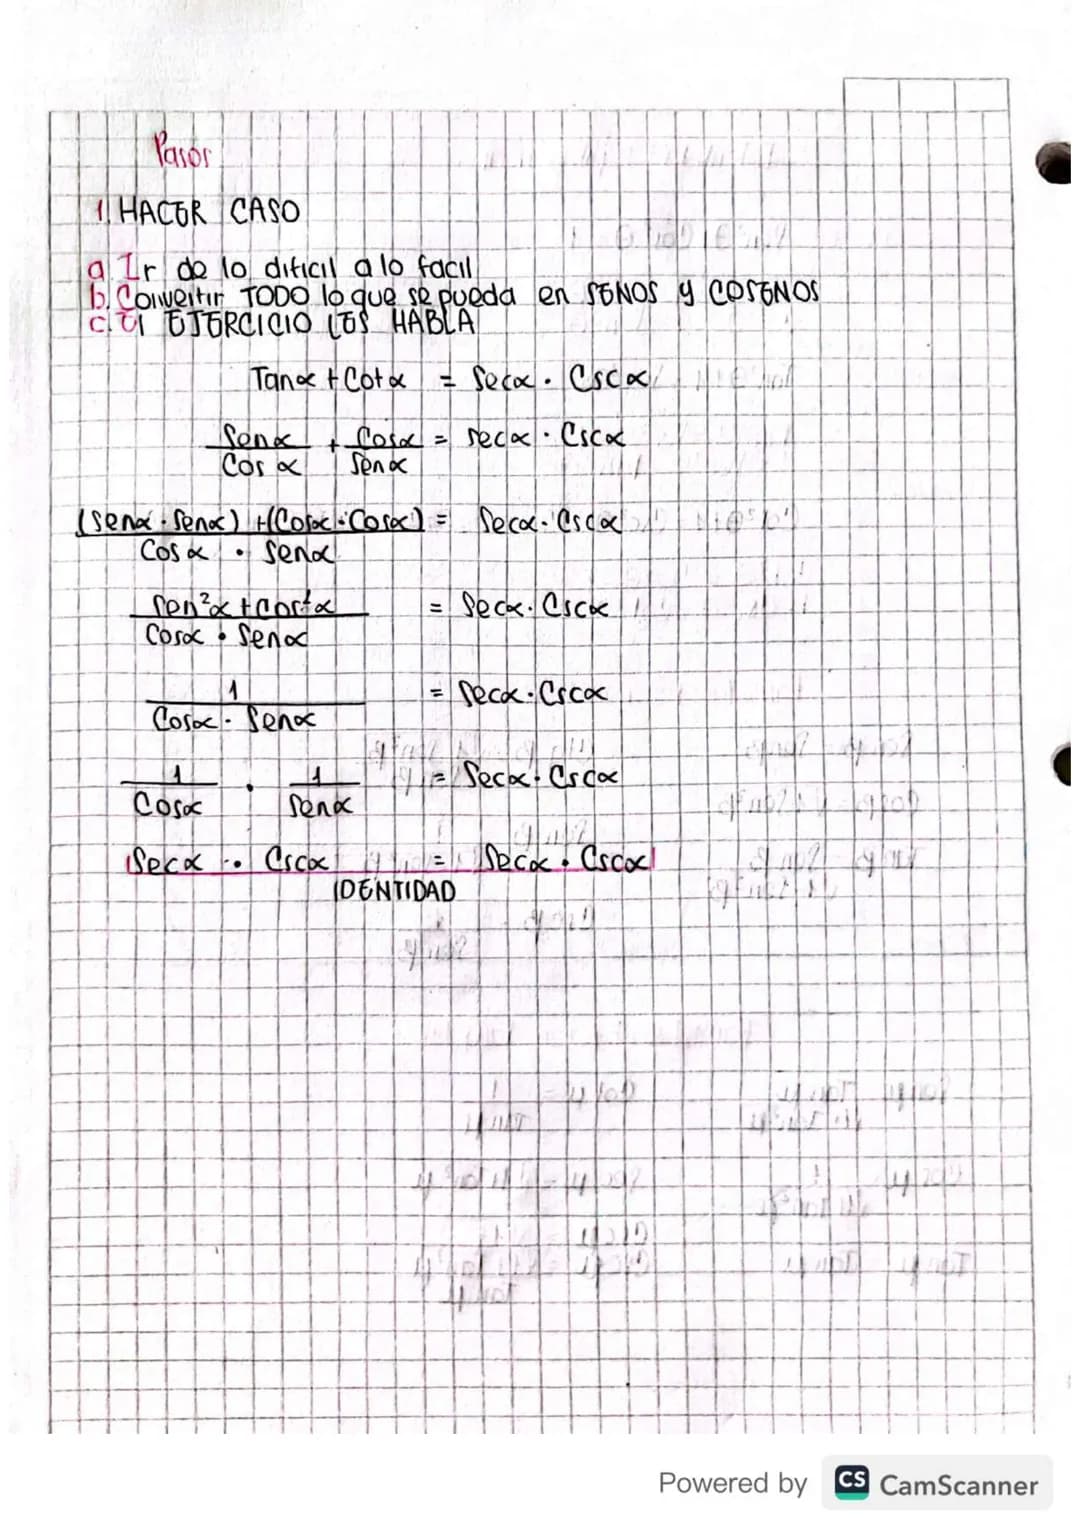 Pasos
1. HACER CASO
a. Ir de lo dificil a lo facil
b. Convertir TODO lo que se pueda en SENOS y COSENOS
c. El EJERCICIO LES HABLA
Tanα + Cotα = Secα · Cscα
Senα/Cosα + Cosα/Senα = secα · Cscα
(Senα · Senα) + (Cosα · Cosα) / Cosα · Senα = Secα · Cscα
Sen²α + Cos²α / Cosα · Senα = Secα · Cscα
1 / Cosα · Senα = Secα · Cscα
1/Cosα · 1/Senα = Secα · Cscα
Secα · Cscα = Secα · Cscα
IDENTIDAD
Powered by CS CamScanner